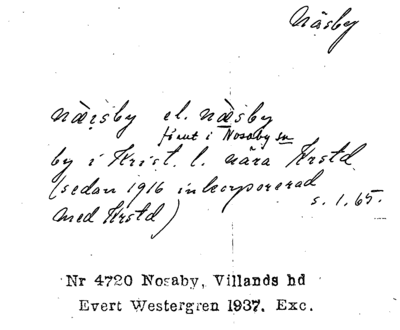 Näsby
næ̀isby el. næ̀sby
förut i Nosaby sn
by i Krist. l. nära Krstd
(sedan 1916 inkorporerad
s. 1.65.
med Krstd)
Nr 4720 Nosaby, Villands hd
Evert Westergren 1937. Exc.